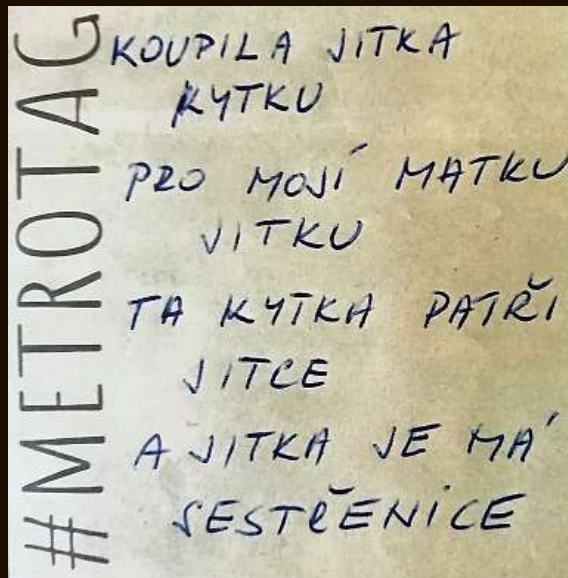 #METROTAG
KOUPILA JITKA
KYTKU
PRO MOJÍ MATKU
JITKU
TA KYTKA PATŘÍ
JITCE
A JITKA JE MÁ
SESTŘENICE